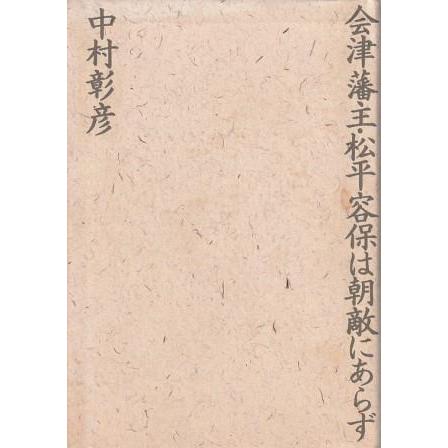 会津藩主・松平容保は朝敵にあらず
中村彰彦